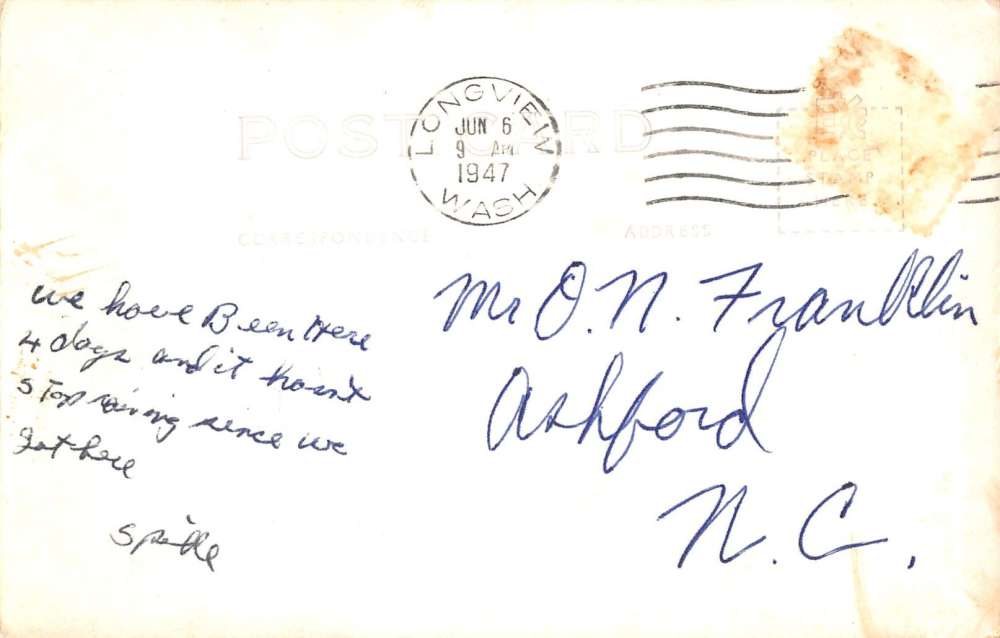 POST CARD
LONGVIEW
JUN 6
9 AM
1947
WASH
PLACE
STAMP
HERE
CORRESPONDENCE
ADDRESS
we have Been Here
4 days and it hasn't
stop raining since we
got here
Mr O. N. Franklin
Ashford
N. C.